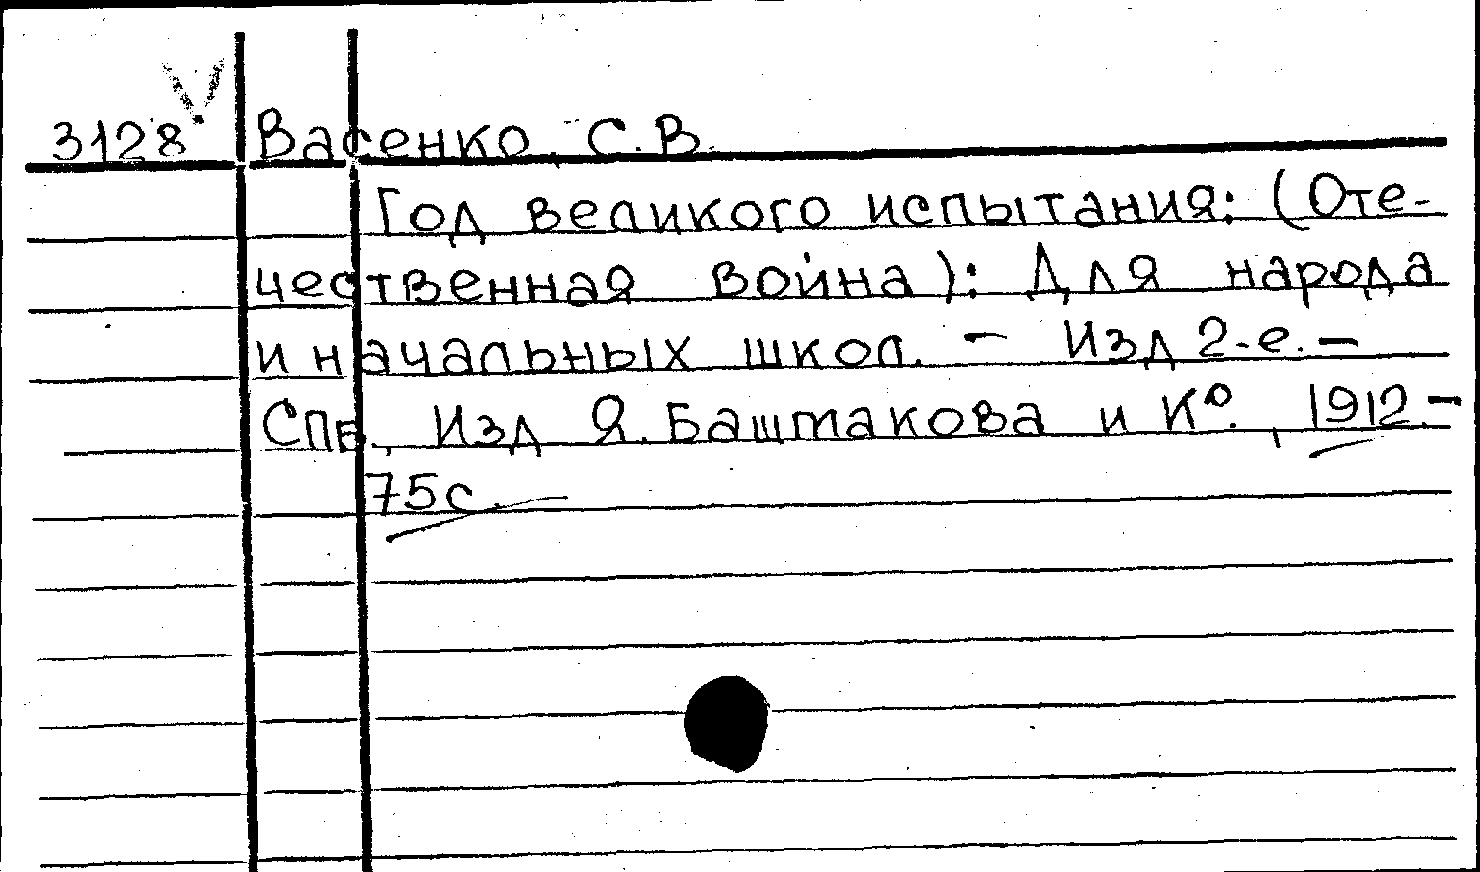 3128 Васенко, С.В.
Год великого испытания: (Оте-
чественная война): Для народа
и начальных школ. - Изд 2-е. -
Спб., Изд Я. Башмакова и К°., 1912. -
75с.